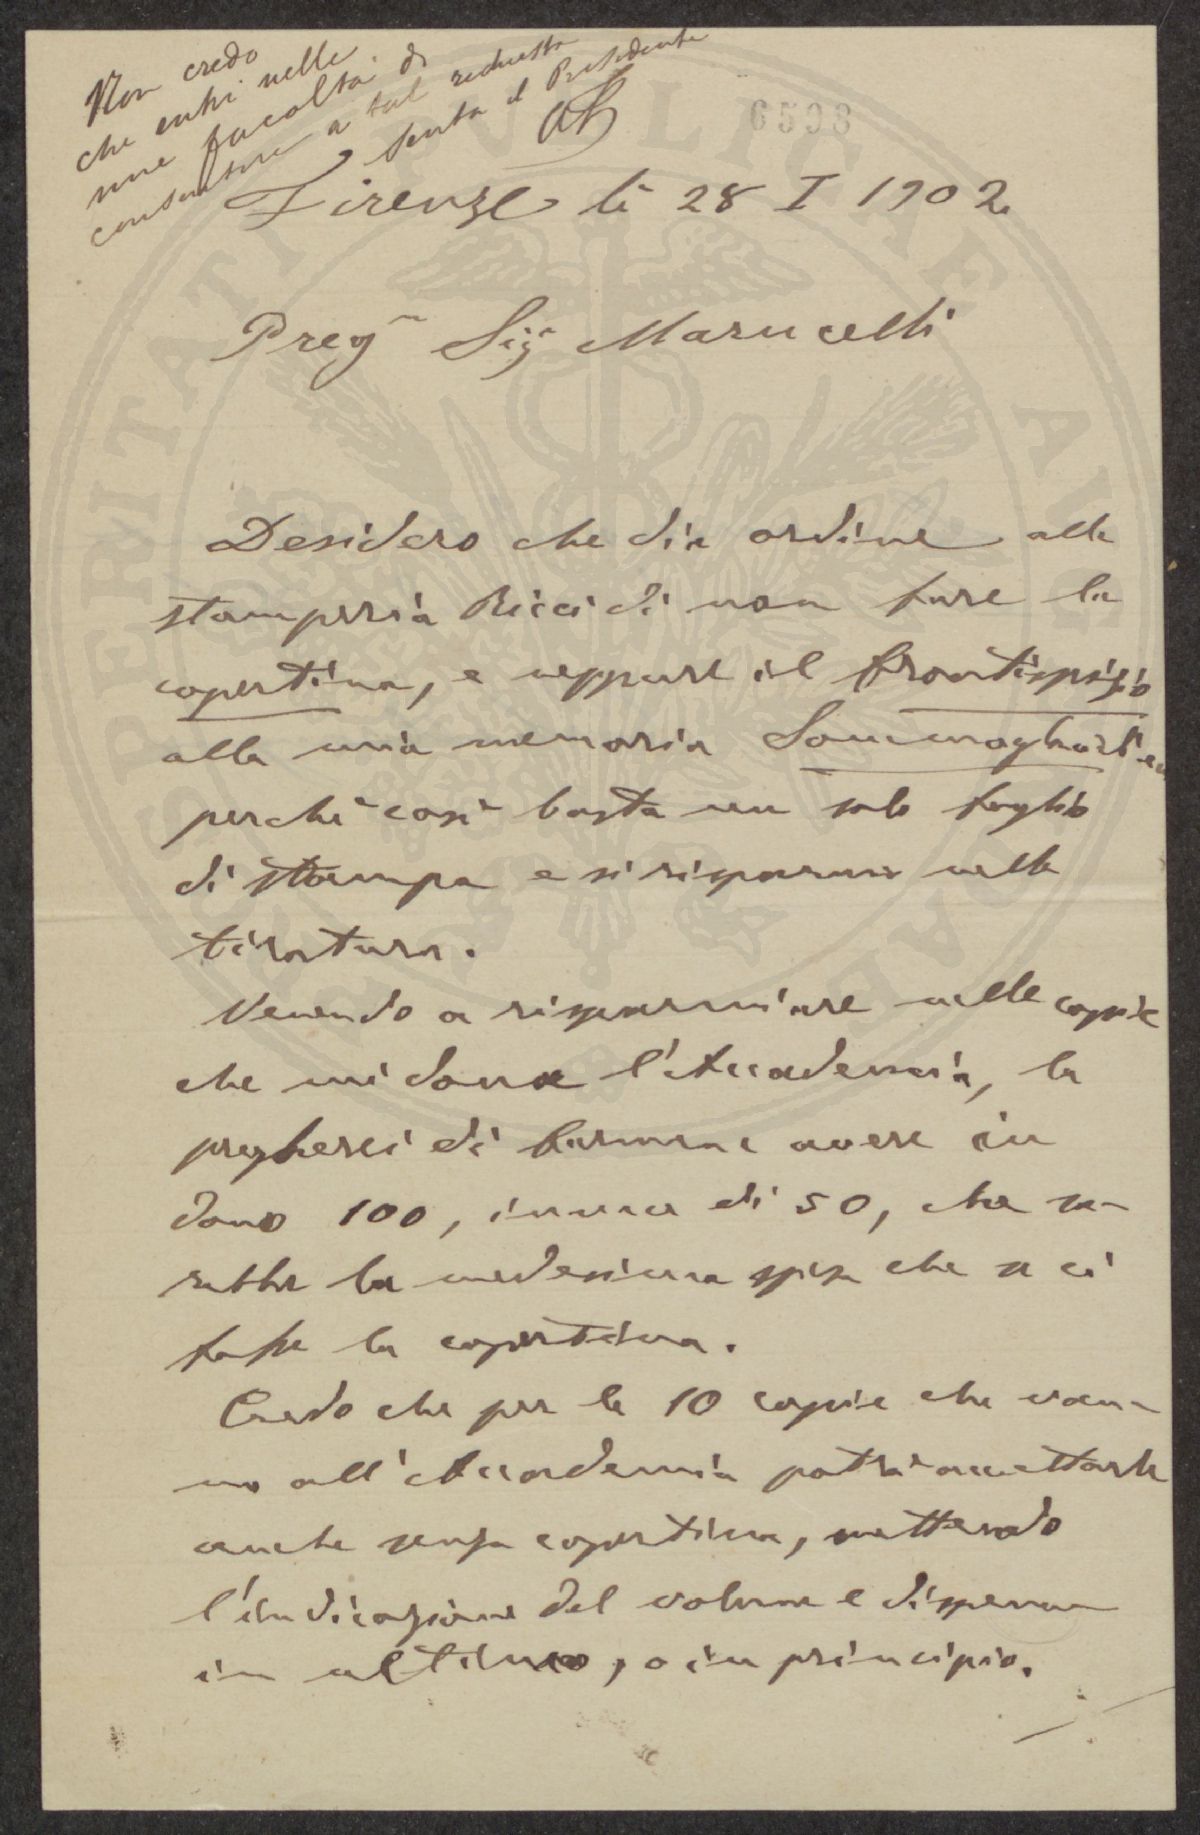 Non credo
che entri nelle
mie facoltà di
consentire a tal richiesta
senta il Presidente
6598
Firenze li 28 I 1902
Preg Sig Marucelli
Desidero che dia ordine alla
stamperia Ricci di non fare la
copertina, e neppure il frontispizio
alla mia memoria
perchè così basta un solo foglio
di stampa e si risparmia nella
tiratura.
Venendo a risparmiare nelle coppie
che mi dona l'Accademia, la
pregherei di farmene avere in
dono 100, invece di 50, che sa-
rebbe la medesima spesa che se ci
fosse la copertina.
Credo che per le 10 copie che van-
no all'Accademia potrà accettarle
anche senza copertina, mettendo
l'indicazione del volume e dispensa
in ultimo, o in principio.